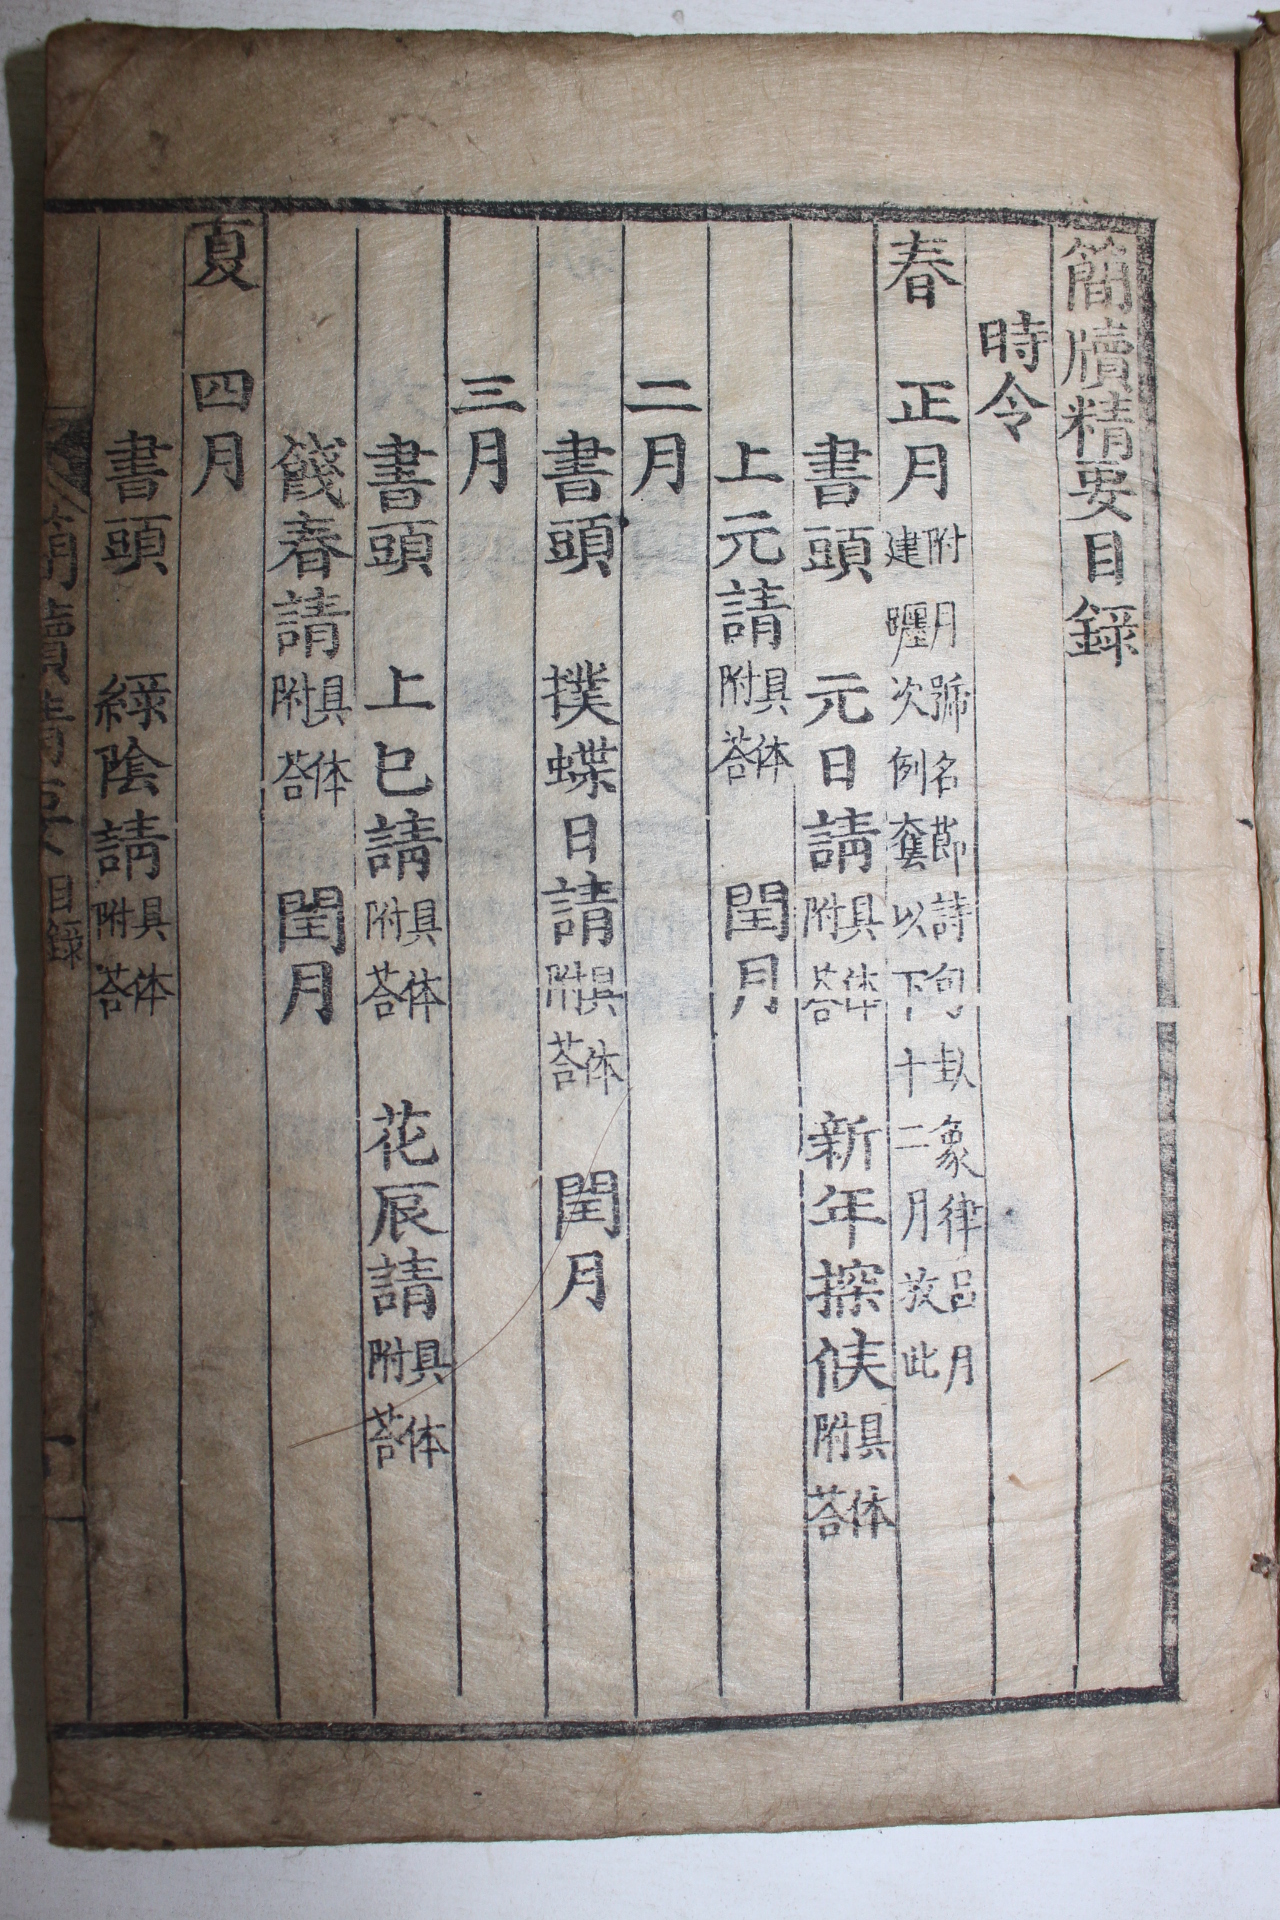 簡牘精要目録
時令
春 正月 附月號名節詩句卦象律呂月建躔次例套以下十二月放此
書頭 元日請具体附荅 新年探候具体附荅
上元請具体附荅 閏月
二月
書頭 撲蝶日請具体附荅 閏月
三月
書頭 上巳請具体附荅 花辰請具体附荅
餞春請具体附荅 閏月
夏 四月
書頭 緑陰請具体附荅
簡牘精要 目録 一